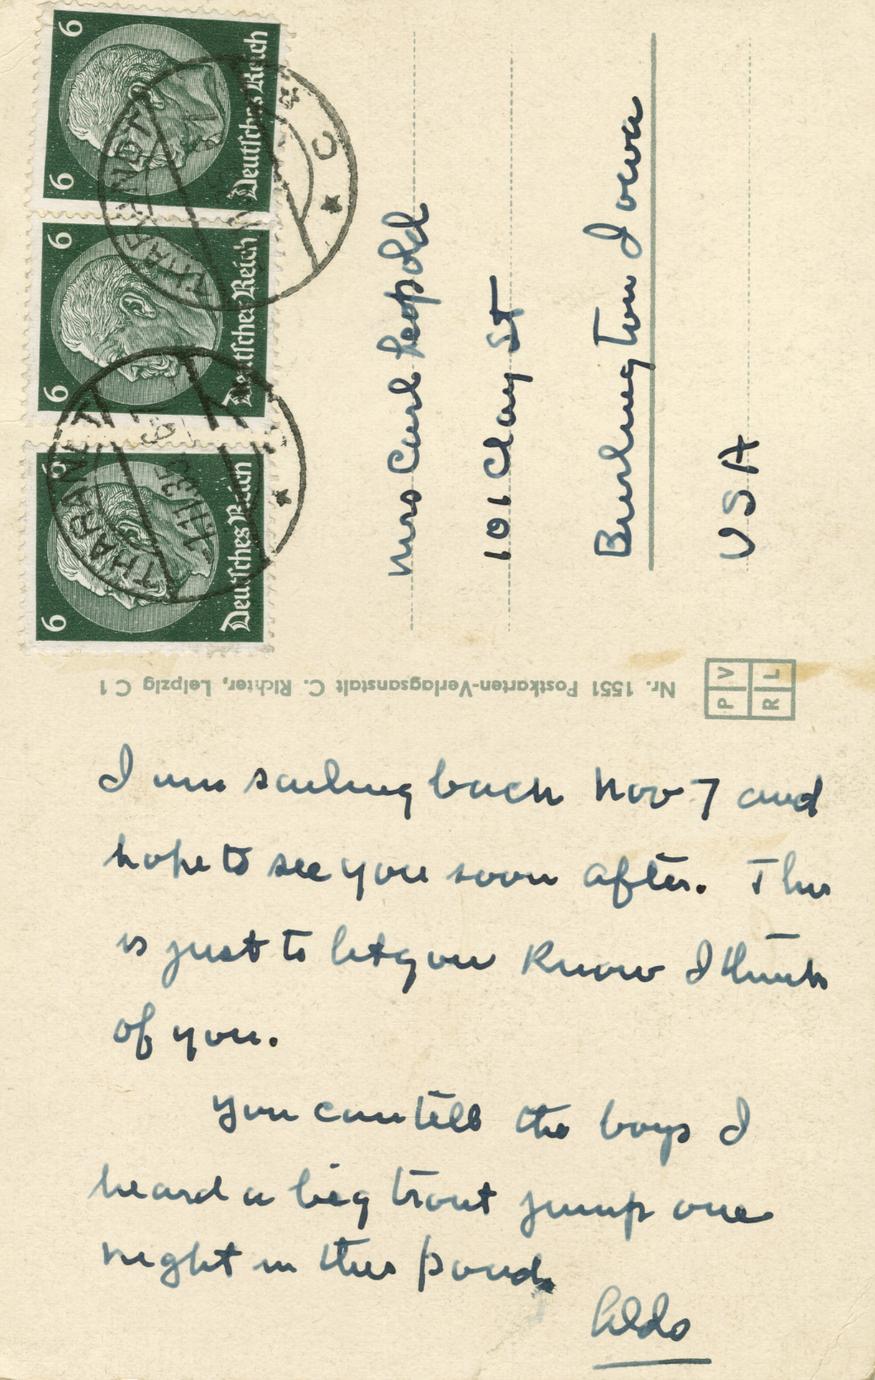 I am sailing back Nov 7 and
hope to see you soon after. This
is just to let you know I think
of you.
You can tell the boys I
heard a big trout jump one
night in this pond.
Aldo
Mrs Carl Leopold
101 Clay St
Burlington Iowa
USA
Nr. 1551 Postkarten-Verlagsanstalt C. Richter, Leipzig C 1
P V
R L
6 6
Deutsches Reich
6 6
Deutsches Reich
6 6
Deutsches Reich
THARANDT
C
THARANDT
1.11.35